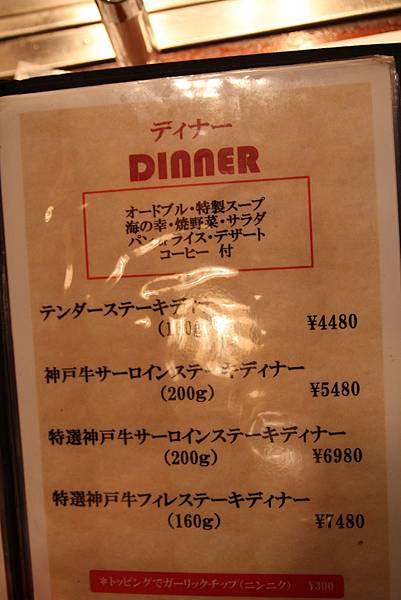 ディナー
DINNER
オードブル・特製スープ
海の幸・焼野菜・サラダ
パンorライス・デザート
コーヒー 付
テンダーステーキディナー
¥4480
神戸牛サーロインステーキディナー
(200g) ¥5480
特選神戸牛サーロインステーキディナー
(200g) ¥6980
特選神戸牛フィレステーキディナー
(160g) ¥7480
*トッピングでガーリックチップ(ニンニク) ¥300